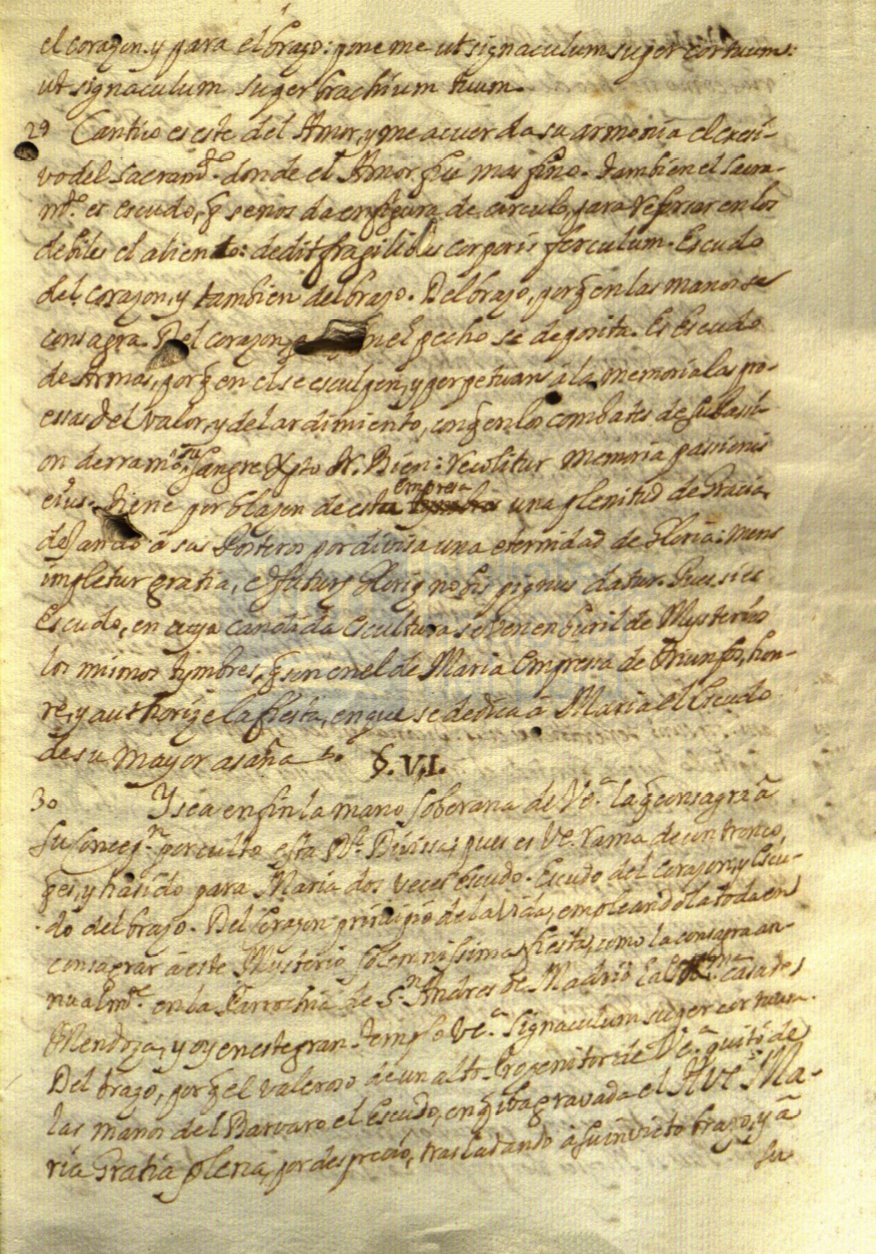 el corazon, y para el brazo: pone me ut signaculum super cor tuum:
ut signaculum super brachium tuum.
29 Cantico es este del Amor, y me acuerda su armonia el exesi-
vo del Sacramto. donde el Amor fue mas fino. Tambien el Sacra-
mto. es escudo, q̃ se nos da en figura de circulo, para reforsar en los
debiles el aliento: dedit fragilibus corporis ferculum. Escudo
del corazon, y tambien del brazo. Del brazo, porq̃ en las manos se
consagra. Del corazon en el pecho se deposita. Es Escudo
de Armas, porq̃ en el se esculpen, y perpetuan à la memoria las pro-
essas del valor, y del ardimiento, conq̃ en los combates de su Passi-
on derramò su sangre Xpto N. Bien: recolitur memoria passionis
eius. Tiene por blazon de esta empresa una plenitud de Gracia,
dejando à sus Posteros por divisa una eternidad de Gloria: mens
impletur gratia, et futurę glorię nobis pignus datur. Pues si es
Escudo, en cuya candida escultura se ven en buril de Mysterios
los mismos tymbres, q̃ son en el de Maria Empressa de triunfos, hon-
re, y authorize la fiesta, en que se dedica à Maria el Escudo
de su mayor asaña.
§. VI.
30 Y sea en fin la mano soberana de Ve.a la q̃ consagra à
su Concepn. por culto esta Divissa, pues es Ve. rama de un tronco,
q̃ es, y ha sido para Maria dos veces escudo. Escudo del corazon, y Escu-
do del brazo. Del Corazon principio de la vida, empleandola toda en
consagrar à este Mysterio solemnissima fiesta, como la consagra an-
nualmte. en la Parrochia de Sn. Andres de Madrid la casa de
Mendoza, y oy en este gran Templo Ve.a Signaculum super cor tuum.
Del brazo, porq̃ el valeroso de un alto Progenitor de Ve.a quitò de
las manos del Barvaro el Escudo, en q̃ iba gravada el Ave Ma-
ria Gratia plena, por desprecio, trasladando à su invicto brazo, y à
su